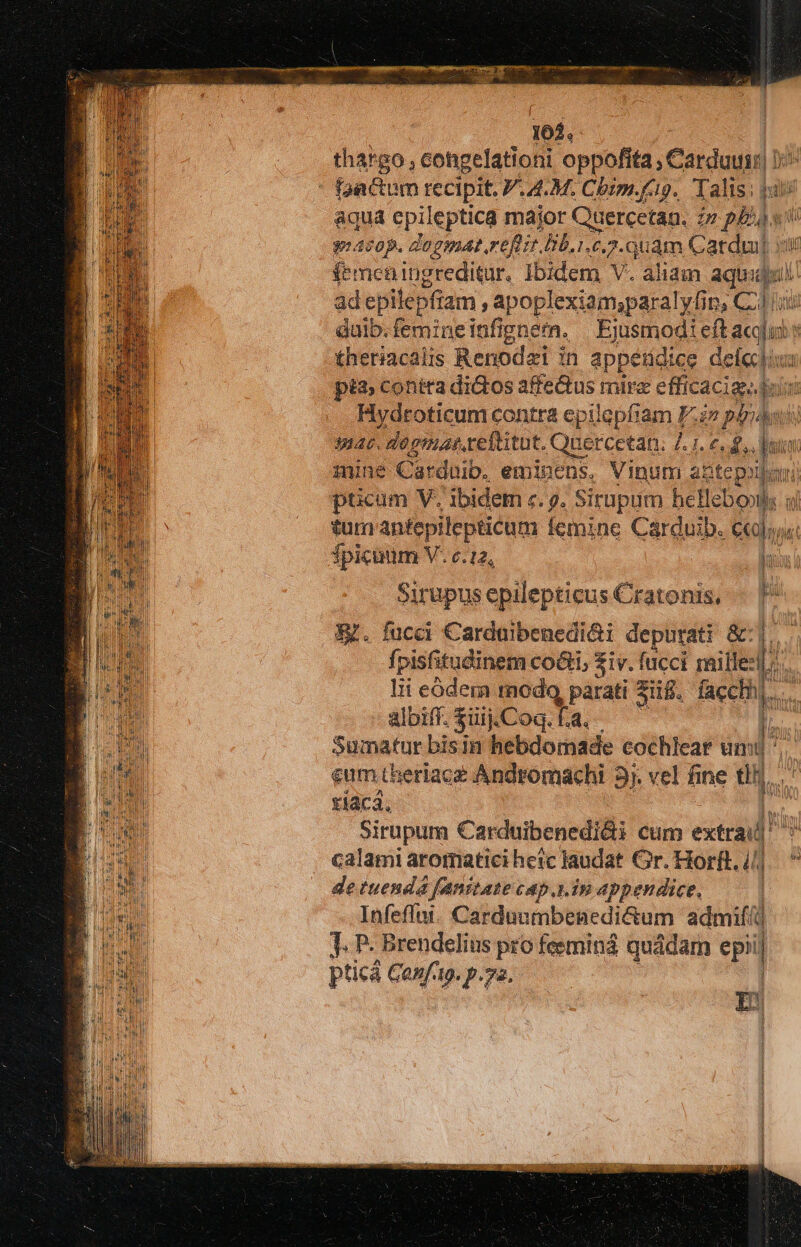 102.
thargo, congelationi opposita, Carduus
sanctum recipit. V. A.M. Chim. f.19. Talis:
aqua epileptica major Quercetan. in
macop. dogmat. restit. lib. 1. c. 7. quàm Cardui
semen ingreditur. Ibidem V. aliam
ad epilepsiam, apoplexiam, paralysin,
duib. semine insignem. Ejusmodi est
theriacalis Renodæi in appendice
pta, contra dictos affectus miræ efficaciæ.
Hydroticum contra epilepsiam V. in
mac. dogmat. restitut. Quercetan. l. 1. c. 8.
mine Carduib. eminens. Vinum
pticum V. ibidem c. 9. Sirupum
tum antepilepticum semine Carduib.
spicuum V. c. 12.
Sirupus epilepticus Cratonis.
℞. succi Carduibenedicti depurati &
spissitudinem cocti, ℥iv. succi
lii eôdem modo parati ℥iiß.
albiss. ℥iiij. Coq. f.a.
Sumatur bis in hebdomade cochlear
cum theriacæ Andromachi ℈j. vel sine
riacâ.
Sirupum Carduibenedicti cum
calami aromatici heîc laudat Gr. Horst.
de tuendâ sanitate cap. 1. in appendice.
Infessui. Carduumbenedictum
J. P. Brendelius pro fœminâ quâdam
pticâ Cons. 19. p. 72.